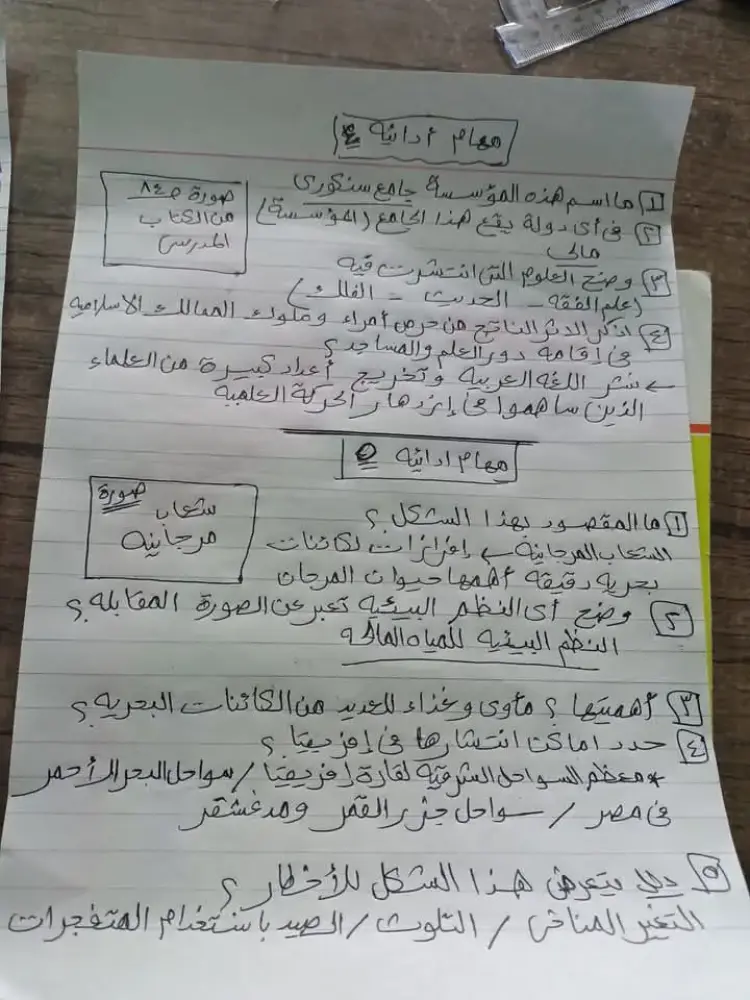 مهام أدائية ٤
١ ما اسم هذه المؤسسة جامع سنكورى
صورة ص ٨٤
من الكتاب
المدرسى
٢ فى أى دولة يقع هذا الجامع (المؤسسة)
مالى
٣ وضح العلوم التى انتشرت فيه
(علم الفقه - الحديث - الفلك)
٤ اذكر الأثر الناتج من حرص أمراء وملوك الممالك الاسلاميه
فى إقامة دور العلم والمساجد؟
← نشر اللغه العربيه وتخريج أعداد كبيرة من العلماء
الذين ساهموا فى إزدهار الحركة العلمية
مهام ادائيه ٥
صورة
شعاب
مرجانيه
١ ما المقصود بهذا الشكل؟
الشعاب المرجانية ← إفرازات لكائنات
بحريه دقيقه أهمها حيوان المرجان
٢ وضح أى النظم البيئيه تعبر عن الصورة المقابله؟
النظم البيئيه للمياه المالحه
٣ أهميتها؟ مأوى وغذاء للعديد من الكائنات البحريه؟
٤ حدد اماكن انتشارها فى إفريقيا؟
* معظم السواحل الشرقية لقارة إفريقيا / سواحل البحر الأحمر
فى مصر / سواحل جزر القمر ومدغشقر
٥ يتعرض هذا الشكل للأخطار؟
التغير المناخى / التلوث / الصيد باستخدام المتفجرات